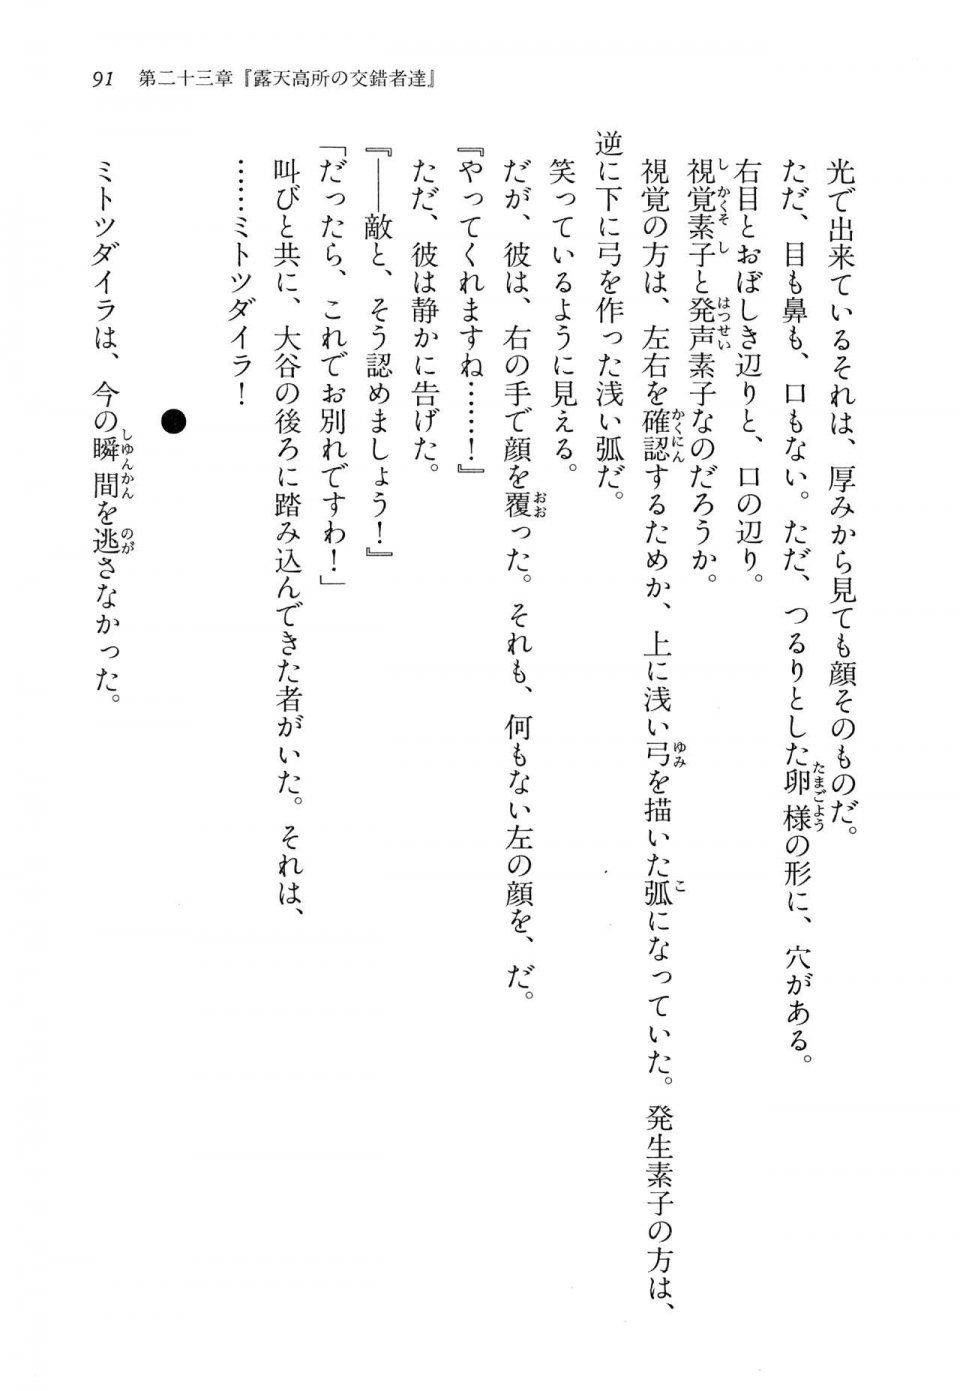 91 第二十三章『露天高所の交錯者達』
光で出来ているそれは、厚みから見ても顔そのものだ。
ただ、目も鼻も、口もない。ただ、つるりとした卵様の形に、穴がある。
右目とおぼしき辺りと、口の辺り。
視覚素子と発声素子なのだろうか。
視覚の方は、左右を確認するためか、上に浅い弓を描いた弧になっていた。発生素子の方は、
逆に下に弓を作った浅い弧だ。
笑っているように見える。
だが、彼は、右の手で顔を覆った。それも、何もない左の顔を、だ。
『やってくれますね……！』
ただ、彼は静かに告げた。
『――敵と、そう認めましょう！』
「だったら、これでお別れですわ！」
叫びと共に、大谷の後ろに踏み込んできた者がいた。それは、
……ミトツダイラ！
●
ミトツダイラは、今の瞬間を逃さなかった。